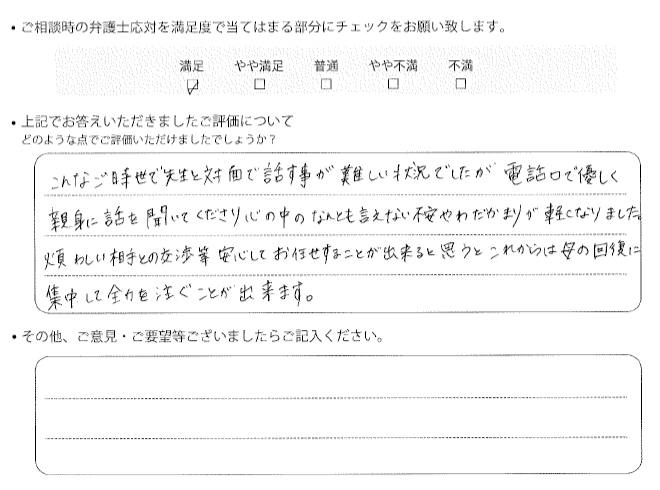 • ご相談時の弁護士応対を満足度で当てはまる部分にチェックをお願い致します。
満足 やや満足 普通 やや不満 不満
☑ □ □ □ □
• 上記でお答えいただきましたご評価について
どのような点でご評価いただけましたでしょうか？
こんなご時世で先生と対面で話す事が難しい状況でしたが 電話口で優しく
親身に話を聞いてくださり心の中のなんとも言えない不安やわだかまりが軽くなりました。
煩わしい相手との交渉等安心してお任せすることが出来ると思うとこれからは母の回復に
集中して全力を注ぐことが出来ます。
• その他、ご意見・ご要望等ございましたらご記入ください。